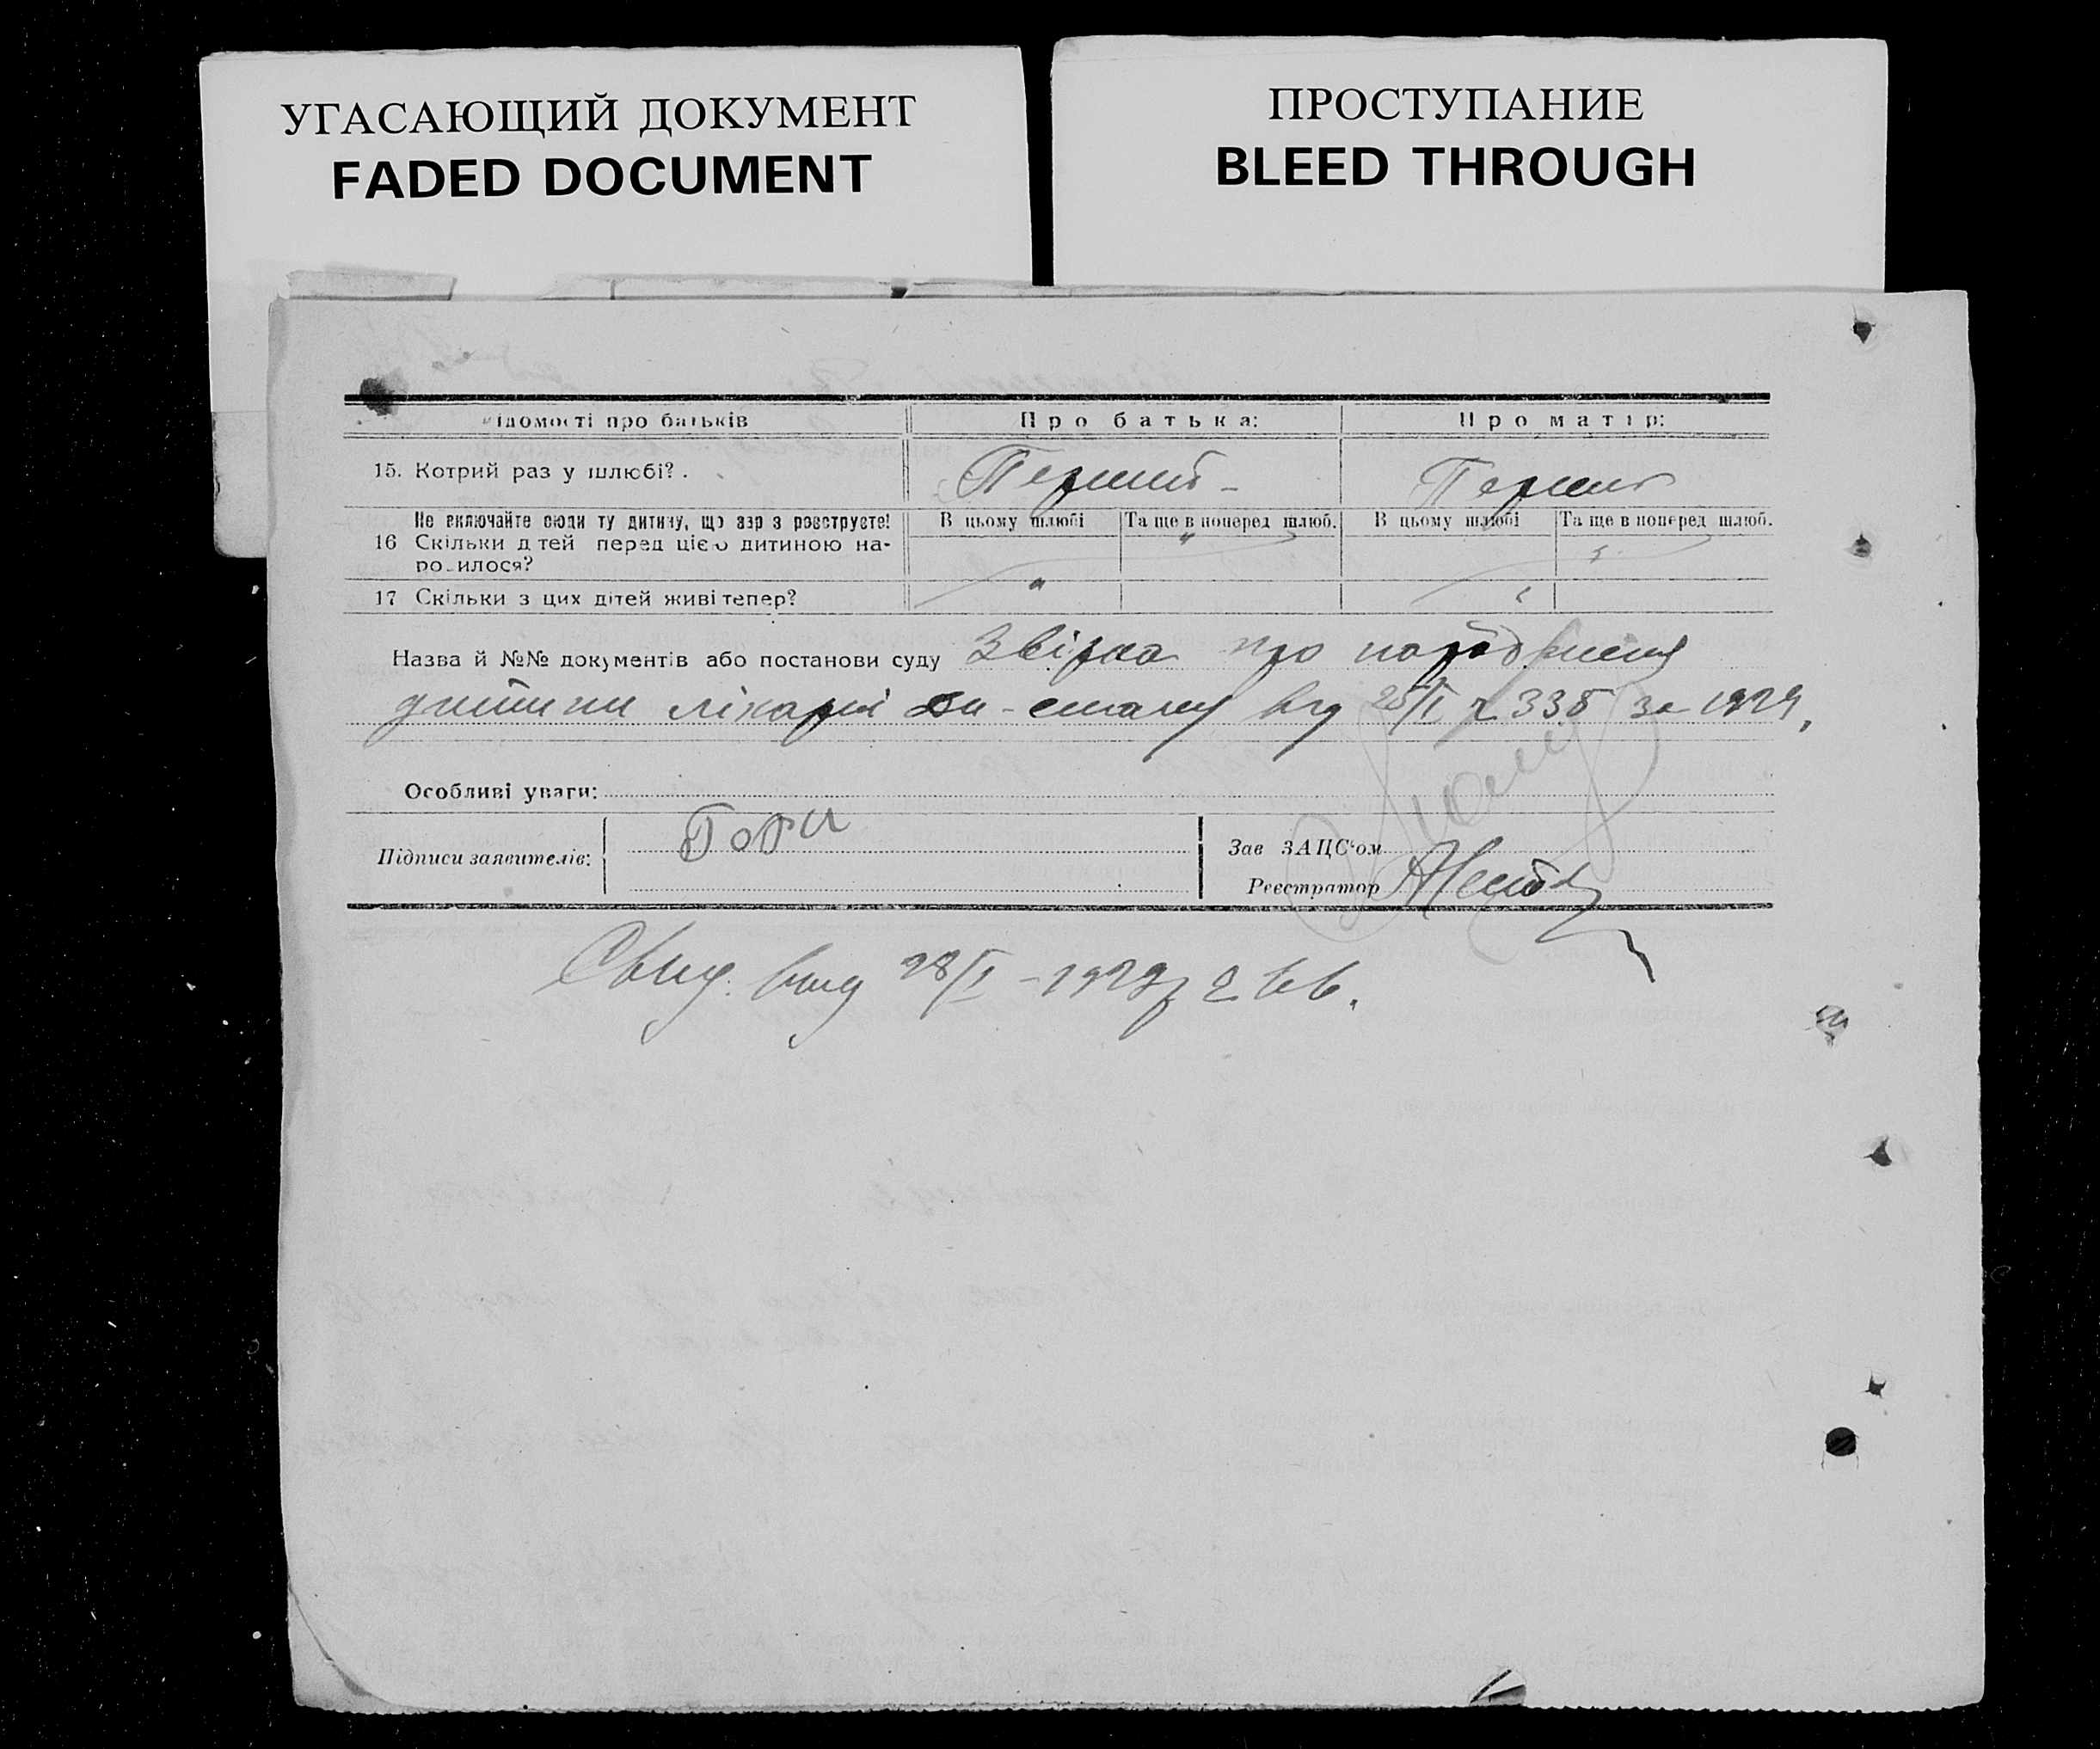 УГАСАЮЩИЙ ДОКУМЕНТ
FADED DOCUMENT
ПРОСТУПАНИЕ
BLEED THROUGH
ідомості про батьків
Про батька:
Про матір:
15. Котрий раз у шлюбі?.
Перший -
Перший
Не включайте сюди ту дитину, що зар з реєструєте!
В цьому шлюбі
Та ще в поперед шлюб.
В цьому шлюбі
Та ще в поперед шлюб.
16 Скільки д тей перед цією дитиною на-
ро илося?
17 Скільки з цих дітей живі тепер?
Назва й №№ документів або постанови суду Звірка про народження
дитини лікарні від 25/I 335 за 1929,
Особливі уваги:
Підписи заявителів:
Зав ЗАЦС'ом
Реєстратор
Свид. вид 28/I - 1929